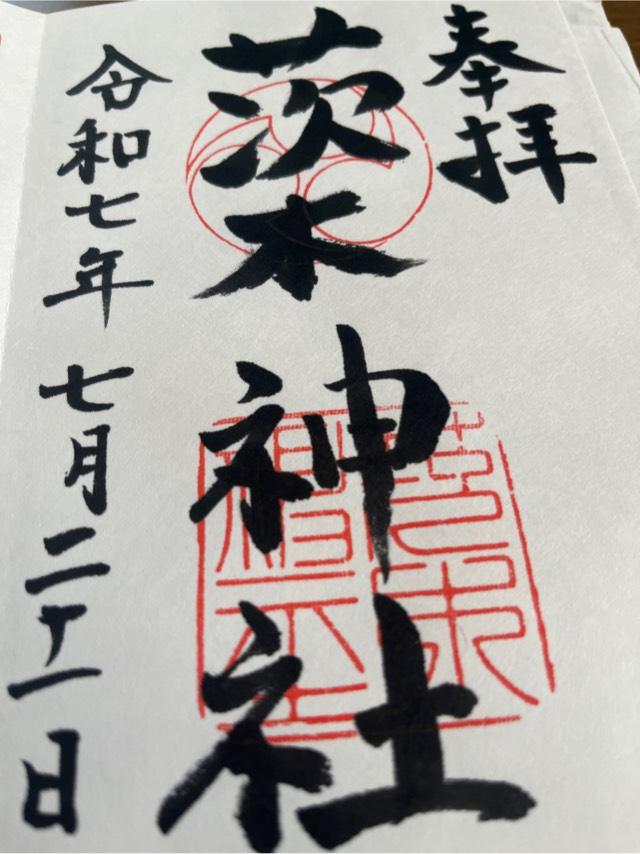 奉拝
茨木神社
令和七年七月二十一日